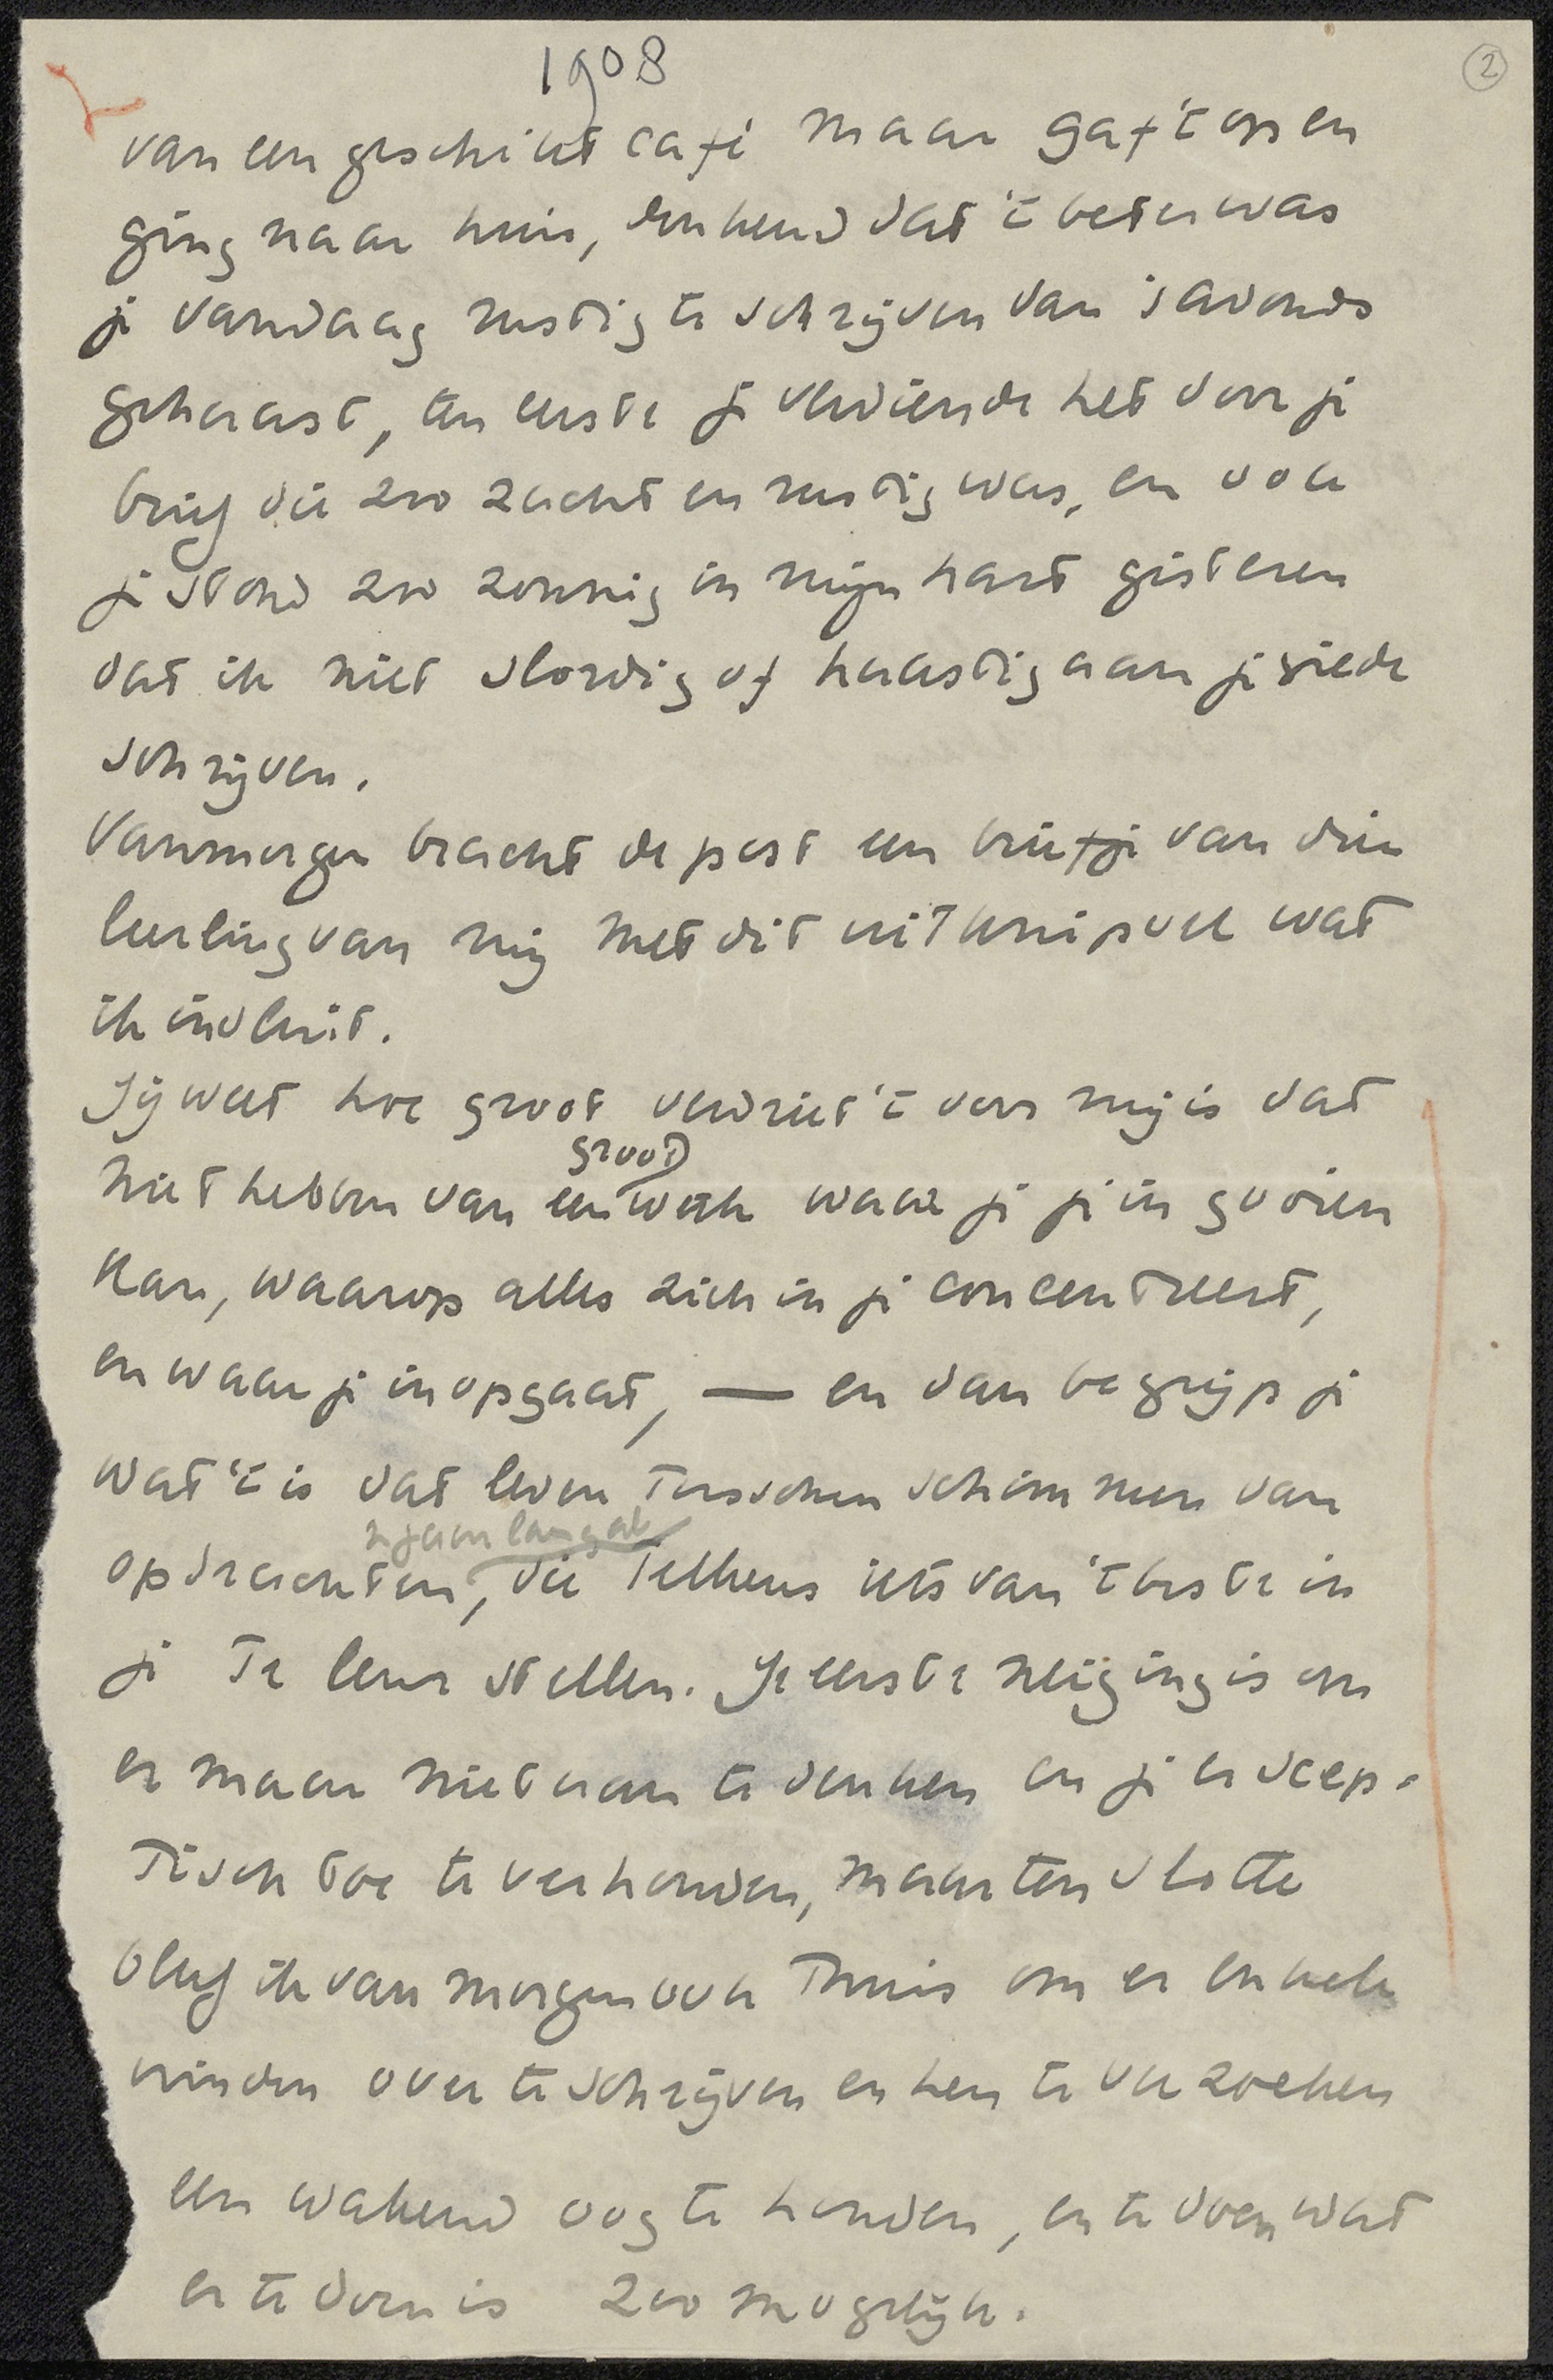 1908
2
van een geschikt café maar gaf 't op en
ging naar huis, denkend dat 't beter was
je vandaag rustig te schrijven dan 's avonds
gehaast, ten eerste je verdiende het door je
brief die zoo zacht en rustig was, en ook
je stond zoo zonnig in mijn hart gisteren
dat ik niet slordig of haastig aan je wilde
schrijven.
Vanmorgen bracht de post een briefje van die
leerling van mij met dit uitknipsel wat
ik insluit.
Jij weet hoe groot verdriet 't voor mij is dat
groot
niet hebben van een werk waar je je in gooien
kan, waarop alles zich in je concentreert,
en waar je in opgaat, — en dan begrijp je
wat 't is dat leven tusschen schimmen van
jaren lang al
opdrachten, die telkens iets van 't beste in
je te leur stellen. Je eerste neiging is om
er maar niet aan te denken en je er scep-
tisch toe te verhouden, maar ten slotte
bleef ik van morgen ook thuis om er enkele
vrinden over te schrijven en hen te verzoeken
een wakend oog te houden, en te doen wat
er te doen is zoo mogelijk.